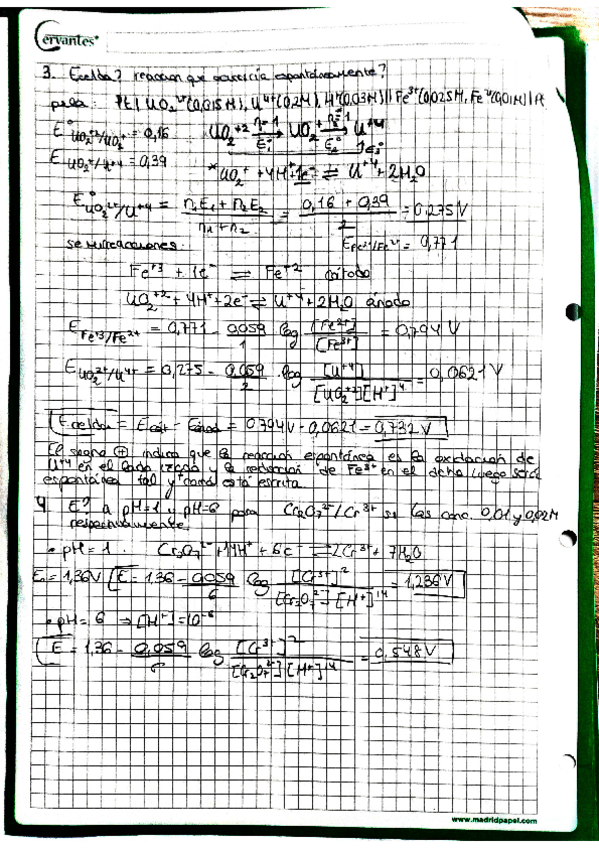 Cervantes
3. Ecelda? reacción que ocurriría espontáneamente?
pila: Pt | UO₂²⁺(0,015M), U⁴⁺(0,2M), H⁺(0,03M) || Fe³⁺(0,025M, Fe²⁺(0,01M) | Pt
E°UO₂⁺²/UO₂⁺ = 0,16 UO₂⁺² n=1 → E₁° UO₂⁺ n=1 → E₂° U⁺⁴
E UO₂⁺/U⁺⁴ = 0,39
*UO₂⁺ + 4H⁺ + 1e⁻ ⇌ U⁺⁴ + 2H₂O
E°UO₂²⁺/U⁺⁴ = n₁E₁ + n₂E₂ / n₁ + n₂ = 0,16 + 0,39 / 2 = 0,275 V
E Fe³⁺/Fe²⁺ = 0,771
semirreacciones:
Fe⁺³ + 1e⁻ ⇌ Fe⁺² cátodo
UO₂⁺² + 4H⁺ + 2e⁻ ⇌ U⁺⁴ + 2H₂O ánodo
E Fe⁺³/Fe²⁺ = 0,771 - 0,059/1 log [Fe²⁺]/[Fe³⁺] = 0,794 V
E UO₂²⁺/U⁴⁺ = 0,275 - 0,059/2 log [U⁺⁴]/[UO₂⁺²][H⁺]⁴ = 0,0621 V
Ecelda = Ecát - Eánod = 0,794V - 0,0621 = 0,732 V
El signo (+) indica que la reacción espontánea es la oxidación de
U⁺⁴ en el lado izqda y la reducción de Fe³⁺ en el dcha luego será
espontánea tal y como está escrita.
4. E? a pH=1 y pH=6 para Cr₂O₇²⁻/Cr³⁺ si las conc. 0,01 y 0,02M
respectivamente.
• pH = 1. Cr₂O₇²⁻ + 14H⁺ + 6e⁻ ⇌ 2Cr³⁺ + 7H₂O
E₀ = 1,36V E = 1,36 - 0,059/6 log [Cr³⁺]²/[Cr₂O₇²⁻][H⁺]¹⁴ = 1,236 V
• pH = 6 ⇒ [H⁺] = 10⁻⁶
E = 1,36 - 0,059/6 log [Cr³⁺]²/[Cr₂O₇²⁻][H⁺]¹⁴ = 0,548 V
www.madridpapel.com